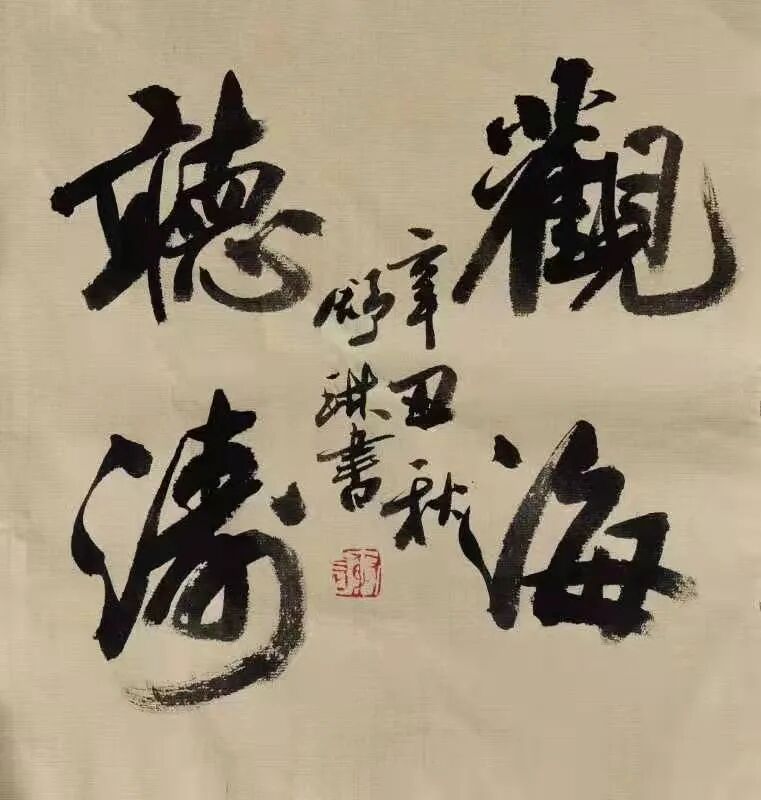 觀海
聽濤
辛丑秋
舒琳書